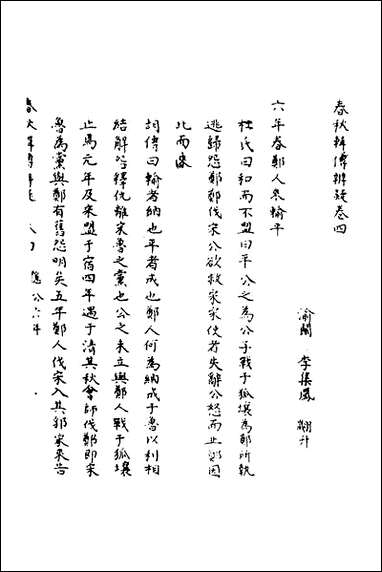 春秋辑傳辨疑卷四
渝關 李集鳳 翽升
六年春鄭人來輸平
杜氏曰和而不盟曰平公之為公子戰于狐壤為鄭所執
逃歸怨鄭鄭伐宋公欲救宋宋使者失辭公怒而止鄭因
此而來
胡傳曰輸者納也平者成也鄭人何為納成于魯以利相
結解怨釋仇離宋魯之黨也公之未立與鄭人戰于狐壤
止焉元年及宋盟于宿四年遇于清其秋會師伐鄭即宋
魯為黨與鄭有舊怨明矣五年鄭人伐宋入其郛宋來告
春秋辑傳辨疑 隱公六年